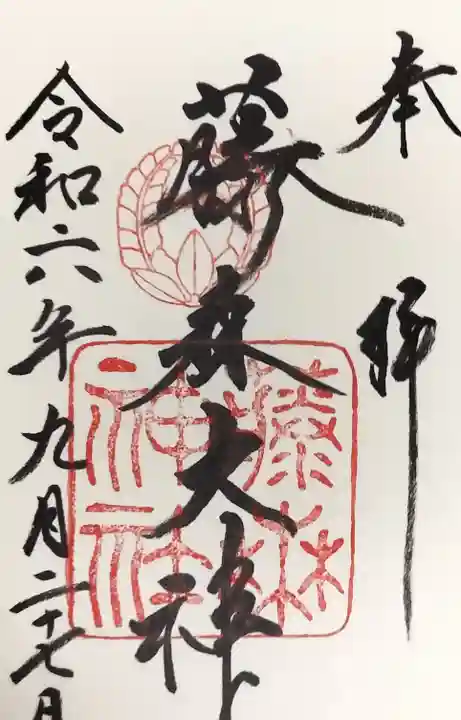 奉拝
藤森大神
令和六年九月二十七日
藤森
神社